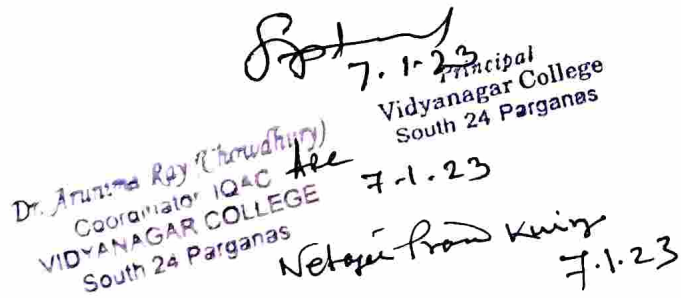 7.1.23
Principal
Vidyanagar College
South 24 Parganas
Dr. Arunima Ray (Chowdhury)
Coordinator IQAC
VIDYANAGAR COLLEGE
South 24 Parganas
7.1.23
Netaji
7.1.23